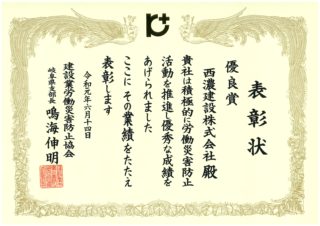 表彰状
優良賞
西濃建設株式会社 殿
貴社は積極的に労働災害防止
活動を推進し優秀な成績を
あげられました
ここに その業績をたたえ
表彰します
令和元年六月十四日
建設業労働災害防止協会
岐阜県支部長 鳴海伸明